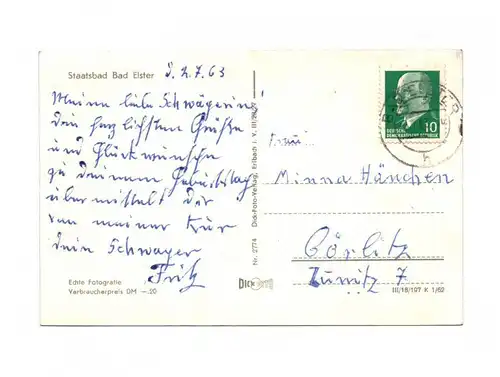 Staatsbad Bad Elster
d. 2.7.63
Meine liebe Schwägerin
die herzlichsten Grüße
und Glückwünsche
zu deinem Geburtstag
übermittelt dir
von meiner Kur
dein Schwager
Fritz
Echte Fotografie
Verbraucherpreis DM –.20
Nr. 2774 Dick-Foto-Verlag, Erlbach i. V.
DICK
10
DEUTSCHE
DEMOKRATISCHE REPUBLIK
Frau
Minna Hänchen
Görlitz
III/18/197 K 1/62